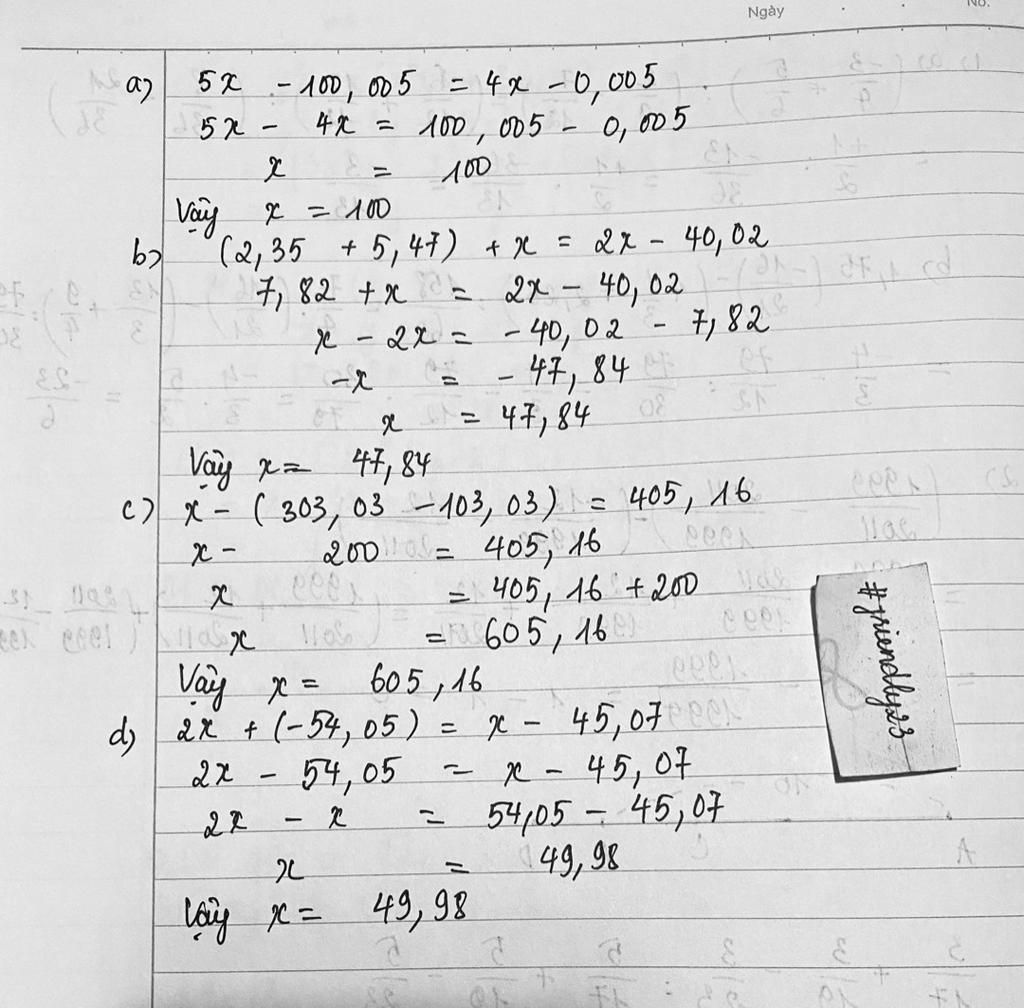 Ngày
No.
a) 5x - 100,005 = 4x - 0,005
5x - 4x = 100,005 - 0,005
x = 100
Vậy x = 100
b) (2,35 + 5,47) + x = 2x - 40,02
7,82 + x = 2x - 40,02
x - 2x = -40,02 - 7,82
-x = -47,84
x = 47,84
Vậy x = 47,84
c) x - (303,03 - 103,03) = 405,16
x - 200 = 405,16
x = 405,16 + 200
x = 605,16
Vậy x = 605,16
#friendly23
d) 2x + (-54,05) = x - 45,07
2x - 54,05 = x - 45,07
2x - x = 54,05 - 45,07
x = 49,98
Vậy x = 49,98